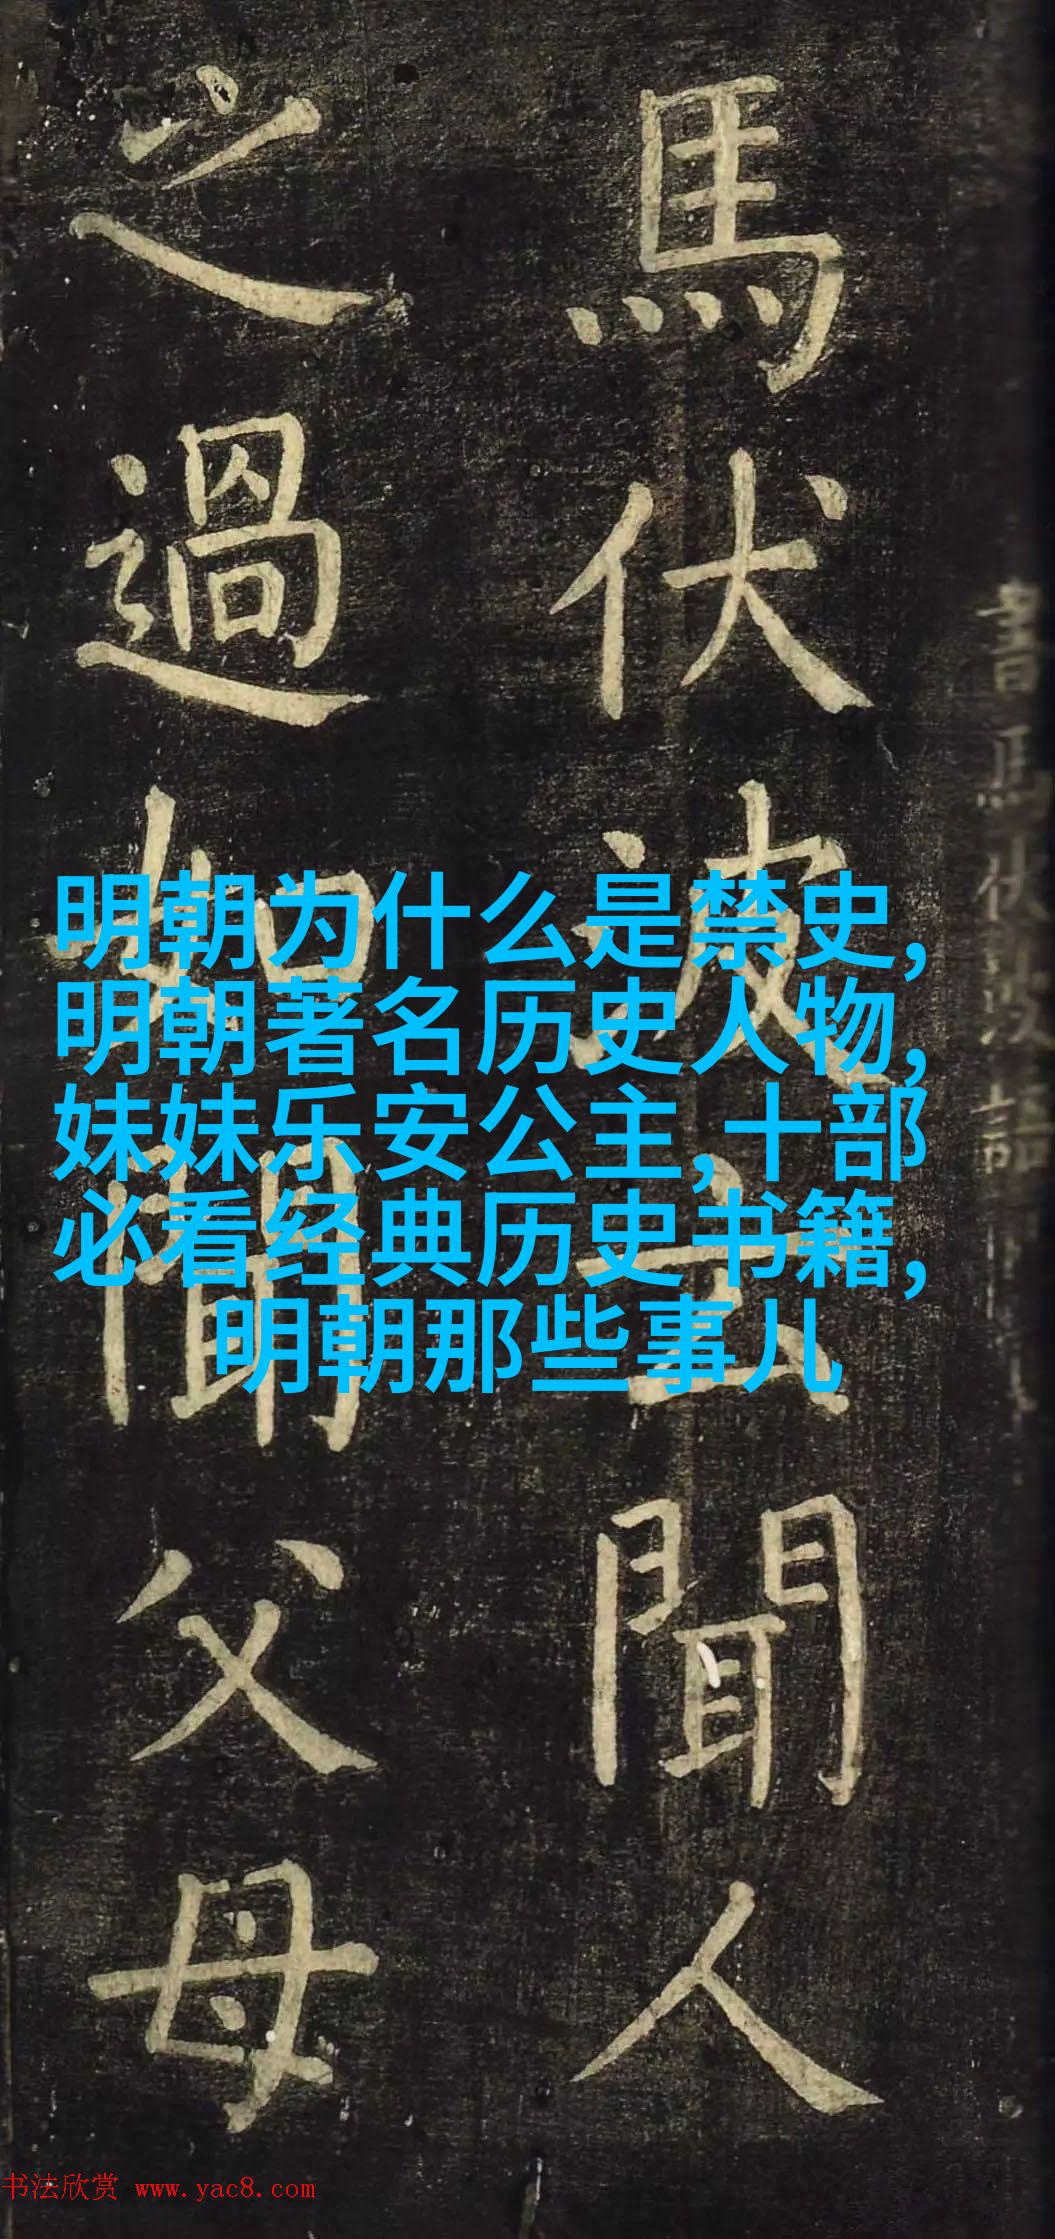 馬伏波云聞人
之過如聞父母
明朝为什么是禁史,
明朝著名历史人物,
妹妹乐安公主,十部
必看经典历史书籍,
明朝那些事儿
书法欣赏 www.yac8.com